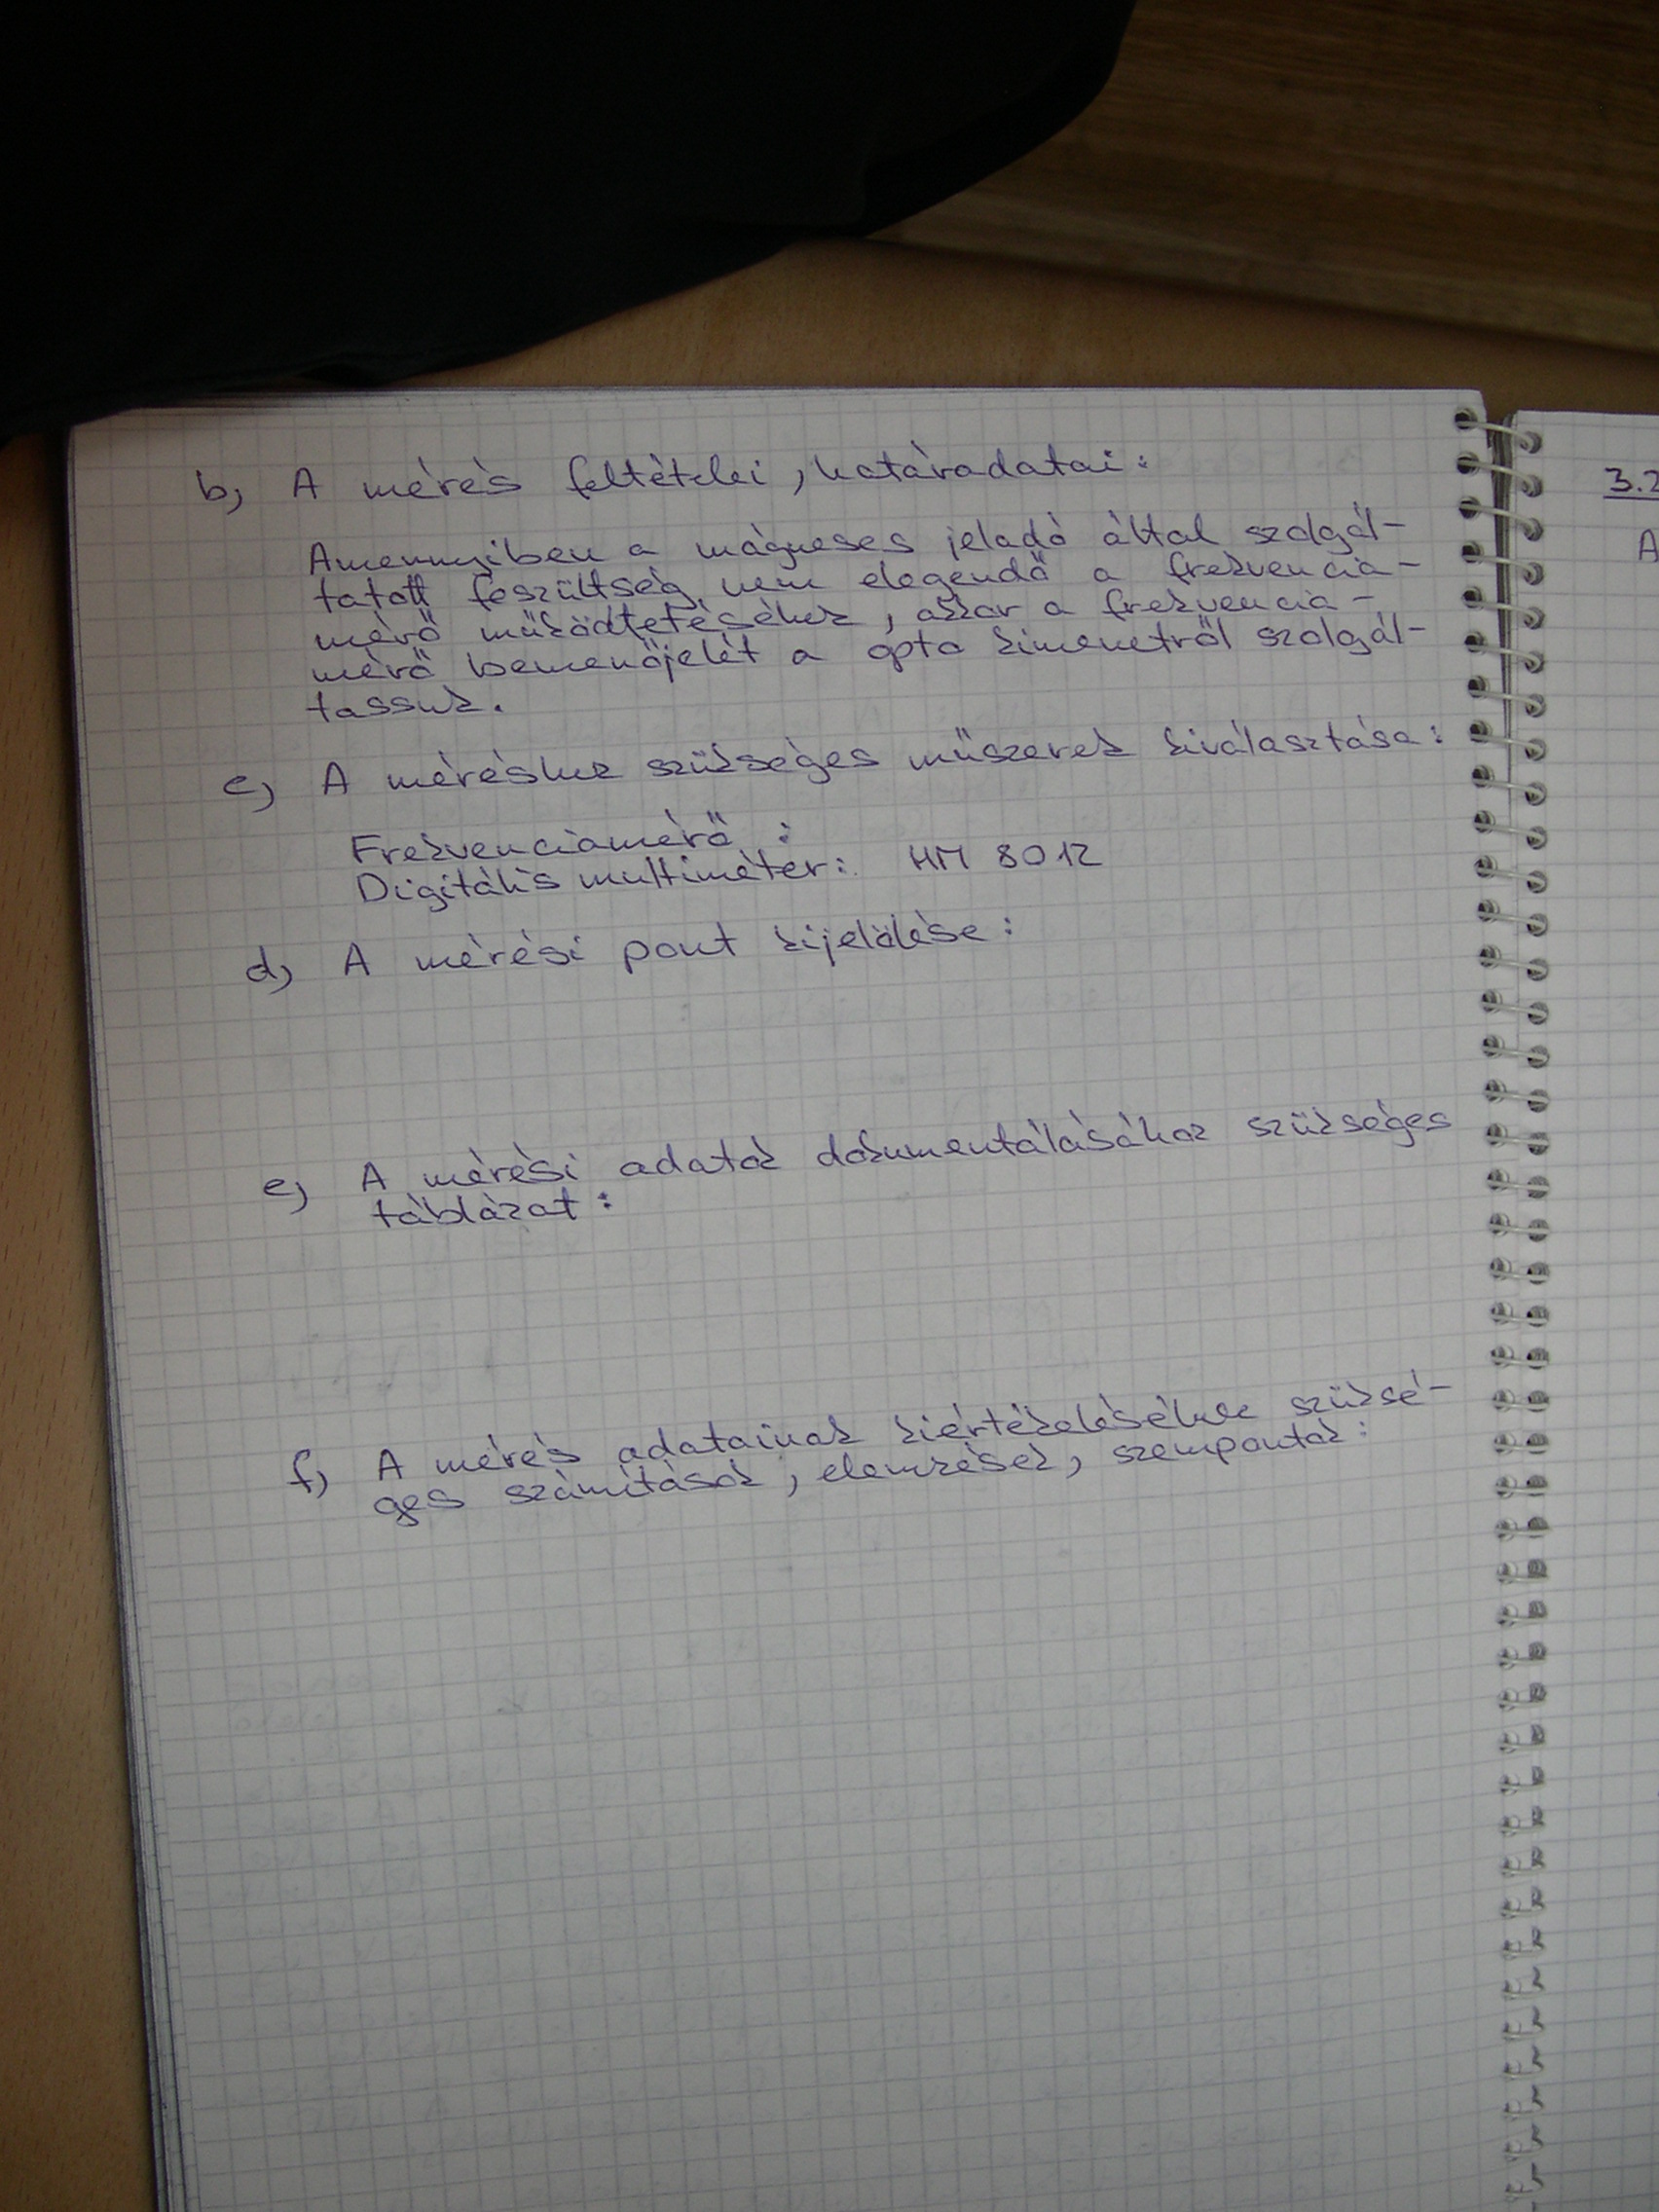 b) A mérés feltételei, határadatai:
Amennyiben a mágneses jeladó által szolgál-
tatott feszültség nem elegendő a frekvencia-
mérő működtetéséhez, akkor a frekvencia-
mérő bemenőjelét a opto kimenetről szolgál-
tassuk.
c) A méréshez szükséges műszerek kiválasztása:
Frekvenciamérő :
Digitális multiméter: HM 8012
d) A mérési pont kijelölése:
e) A mérési adatok dokumentálásához szükséges
táblázat:
f) A mérés adatainak kiértékeléséhez szüksé-
ges számítások, elemzések, szempontok:
3.2
A